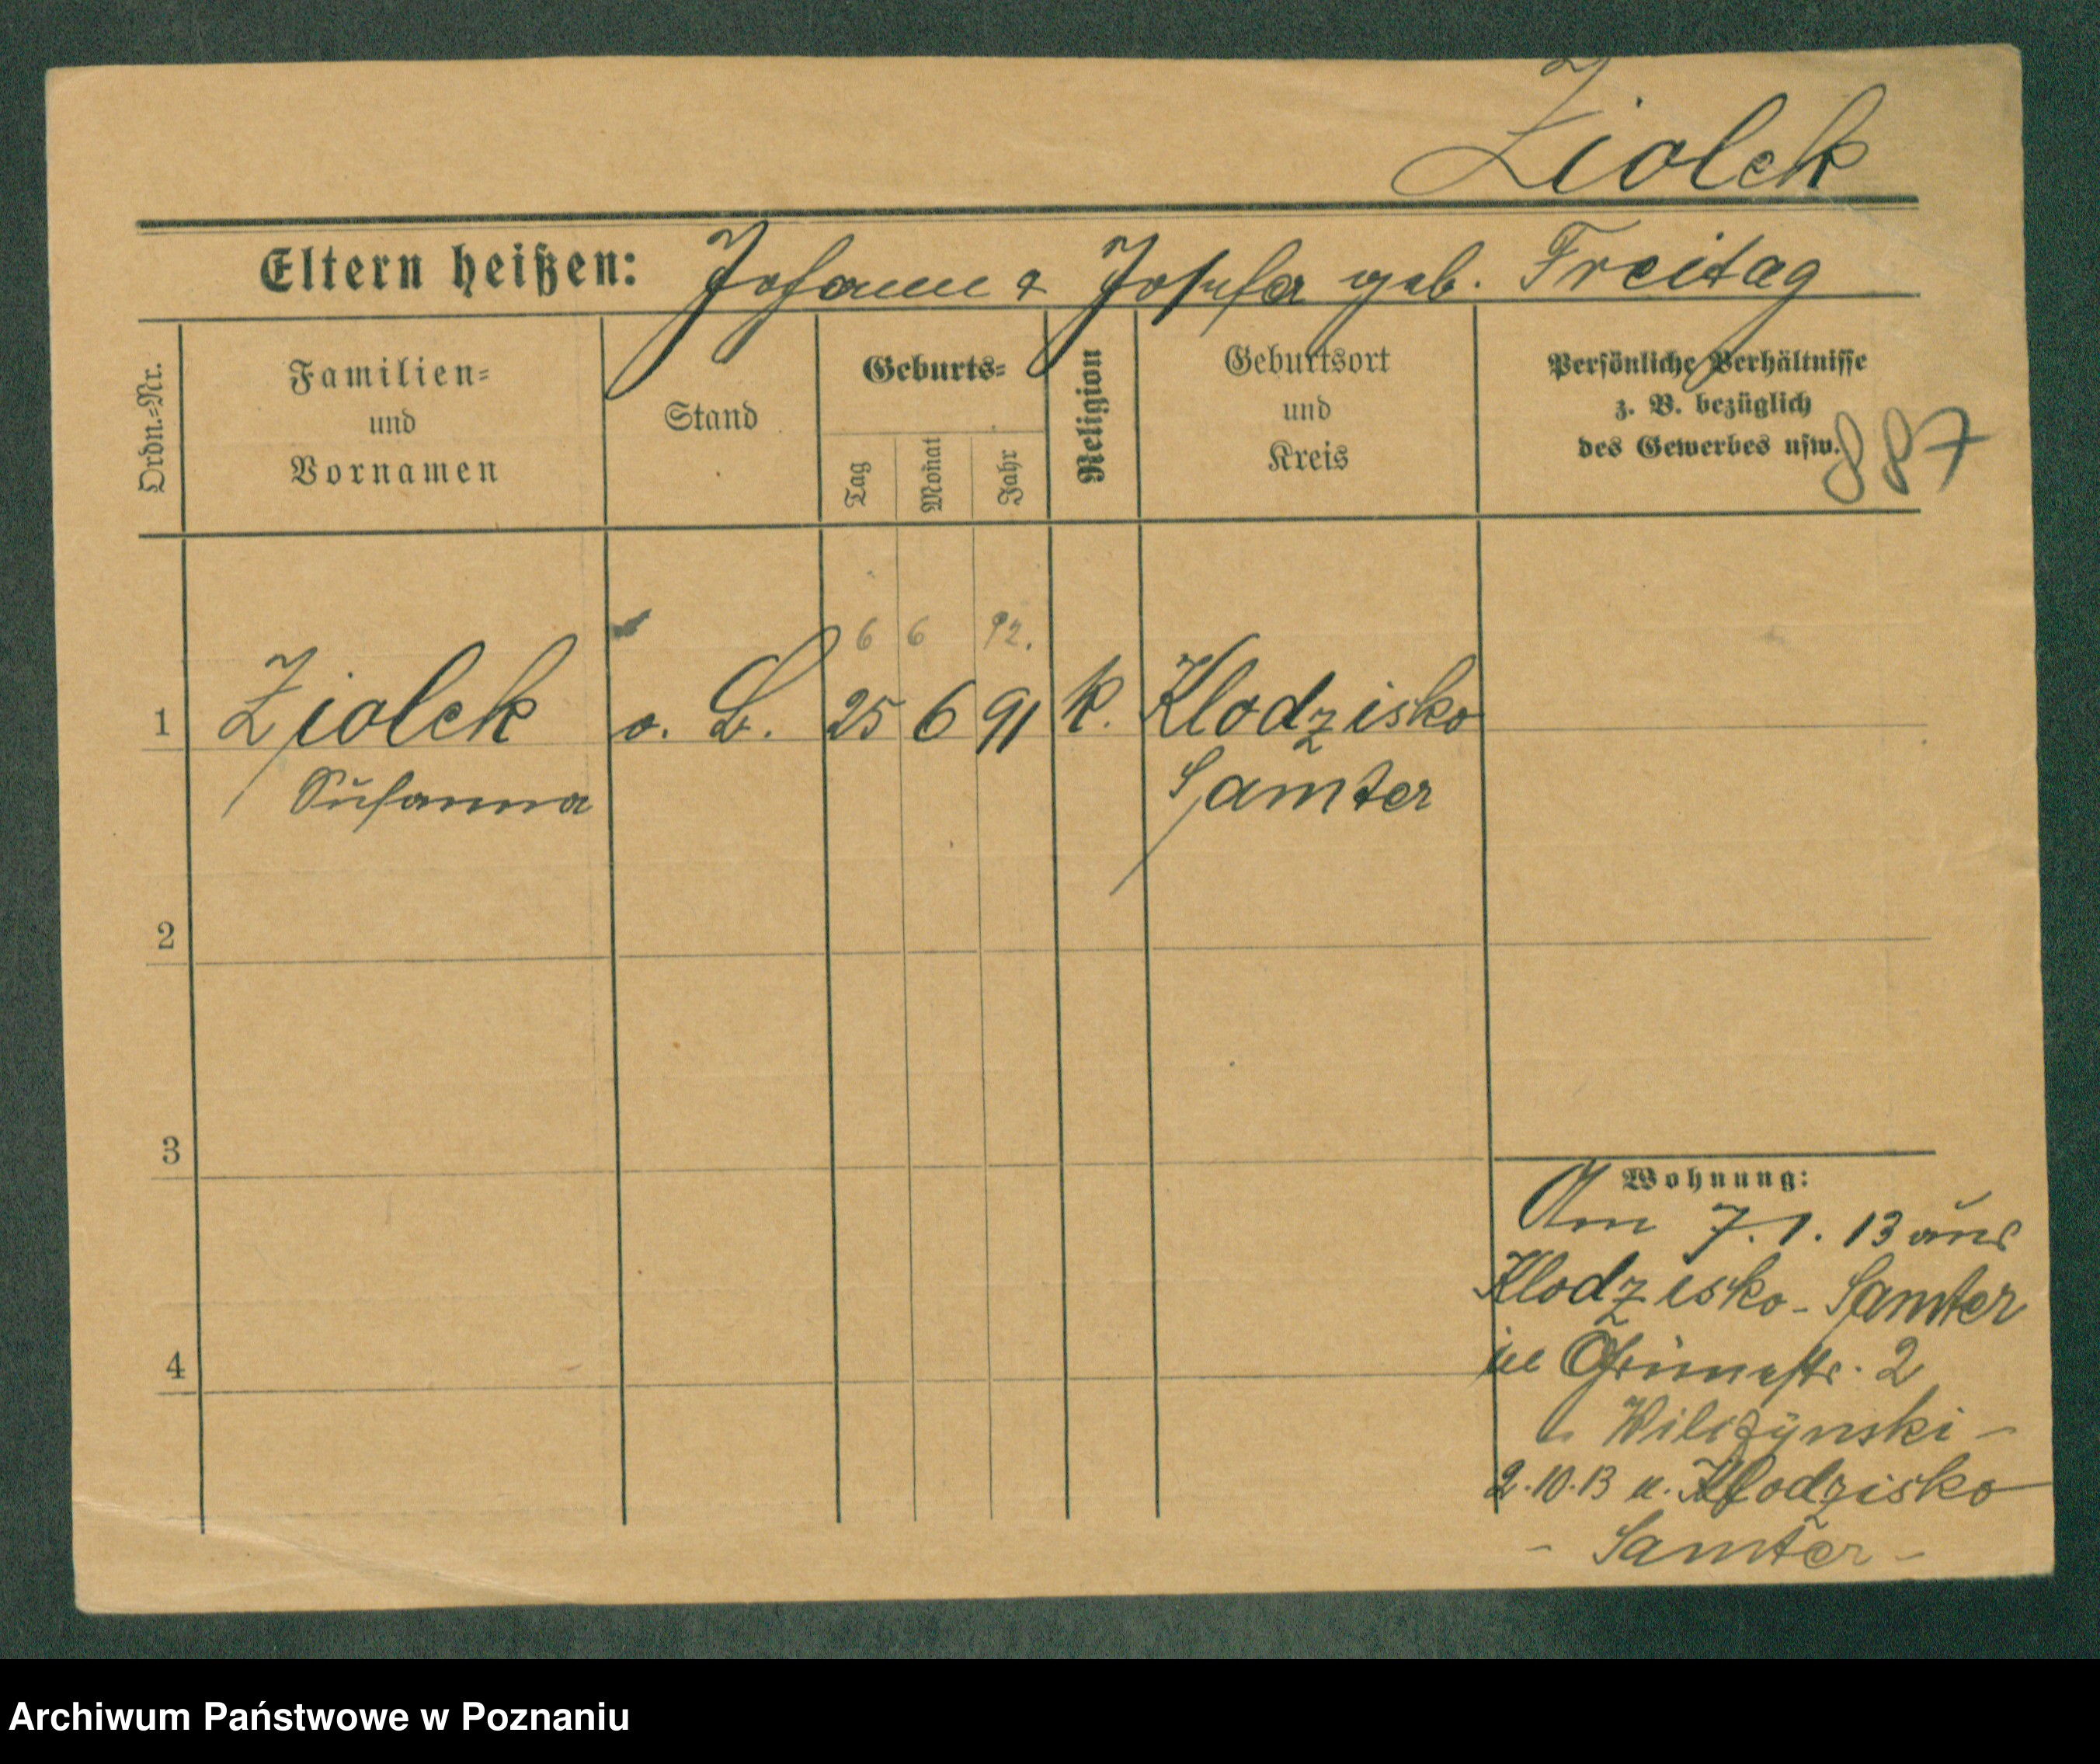 Ziolek
Eltern heißen: Johann & Josefa geb. Freitag
Ordn.=Nr.
Familien=
und
Vornamen
Stand
Geburts=
Tag
Monat
Jahr
Religion
Geburtsort
und
Kreis
Persönliche Verhältnisse
z. B. bezüglich
des Gewerbes usw.
887
6 6 92.
1 Ziolek o. B. 25 6 91 k. Klodzisko
Susanna Samter
2
3
4
Wohnung:
Am 7. 1. 13 aus
Klodzisko - Samter
Grünestr. 2
Wilczynski -
2.10.13 n. Klodzisko
- Samter -
Archiwum Państwowe w Poznaniu